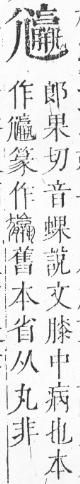 郎果切音蜾說文膝中病也本
作篆作舊本省从丸非